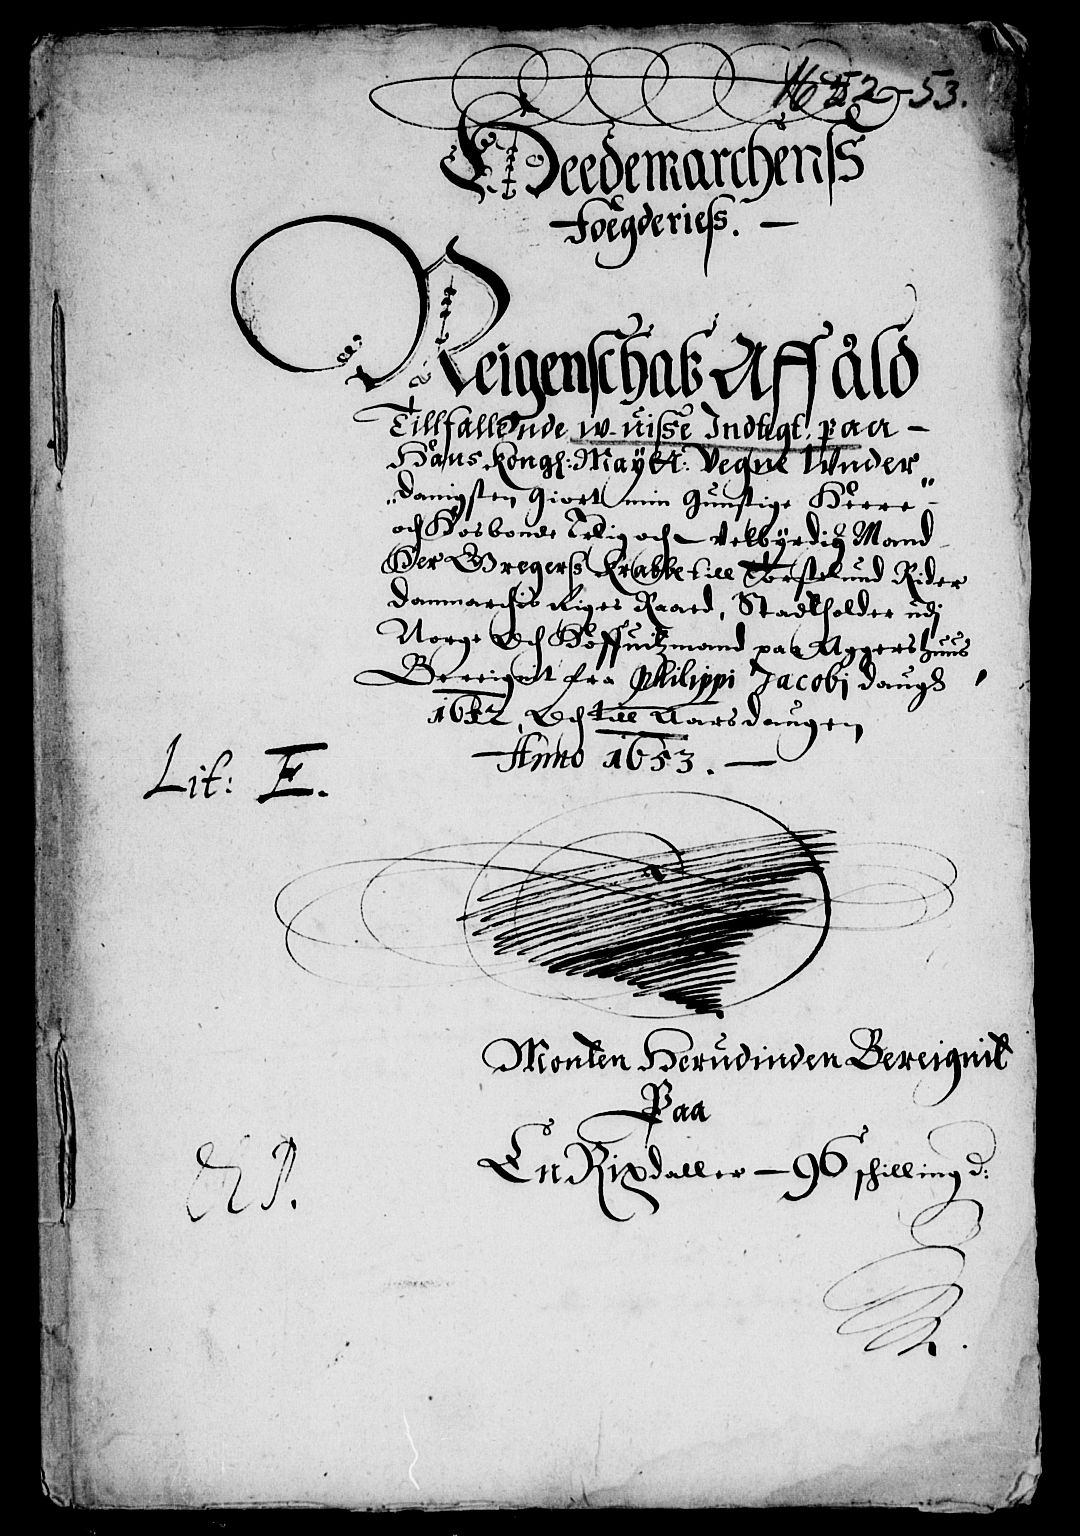 1652-53.
Heedemarchenß
Foegderieß.
Reigenschab Aff ald
Tillfallende w-uisse Indtegt: paa
Hans Kongl: Maytt: Vegne Wnder
danigsten Giort min Gunstige Herre
och Hosbonde Erlig och Velbyrdig Mand
Her Gregerß Krabbe till Torstelund Rider
Danmarchis Riges Raaed, Stadtholder udj
Norge Och Höffuitzmand paa Aggershuus
Bereignt fra Philippi Jacobj daugh
1652, Och till Aarsdaugen
Anno 1653.
Lit: E.
Monten Herudinden Bereignit
Paa
En Rixdaller - 96 schilling d: